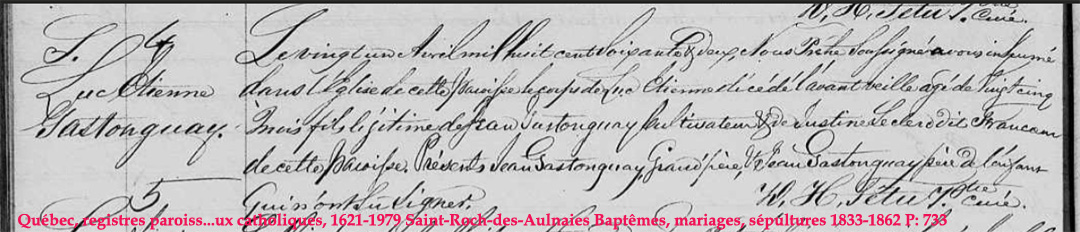 D. H. Têtu, Ptre
Curé.
S. 4
Luc Etienne
Gastonguay.
Le vingt un Avril mil huit cent soixante & deux, Nous Prêtre Soussigné avons inhumé
dans l'Eglise de cette Paroisse le corps de Luc Etienne décédé l'avant veille agé de vingt cinq
mois fils légitime de Jean Gastonguay Cultivateur & de Justine Leclerc dit Francoeur
de cette Paroisse. Présents Jean Gastonguay, Grand père, & Jean Gastonguay père de l'enfant
qui n'ont su signer.
D. H. Têtu, Ptre
Curé.
5
Québec, registres paroiss...ux catholiques, 1621-1979 Saint-Roch-des-Aulnaies Baptêmes, mariages, sépultures 1833-1862 P: 733